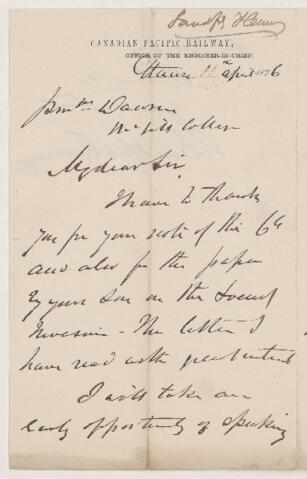 Sandfd Fleming
CANADIAN PACIFIC RAILWAY,
OFFICE OF THE ENGINEER-IN-CHIEF.
Ottawa 11th April 1876
Dawson
McGill College
My dear Sir,
I have to thank
you for your note of the 6th
and also for the paper
by your Son on the Locust
Invasion - The latter I
have read with great interest
I will take an
early opportunity of speaking